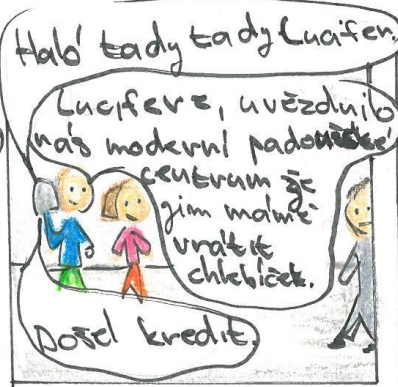 Haló tady tady Lucifer.
Lucifere, uvězdnilo
nás moderní
centrum že
jim máme
vrátit
chlebíček.
Došel kredit.